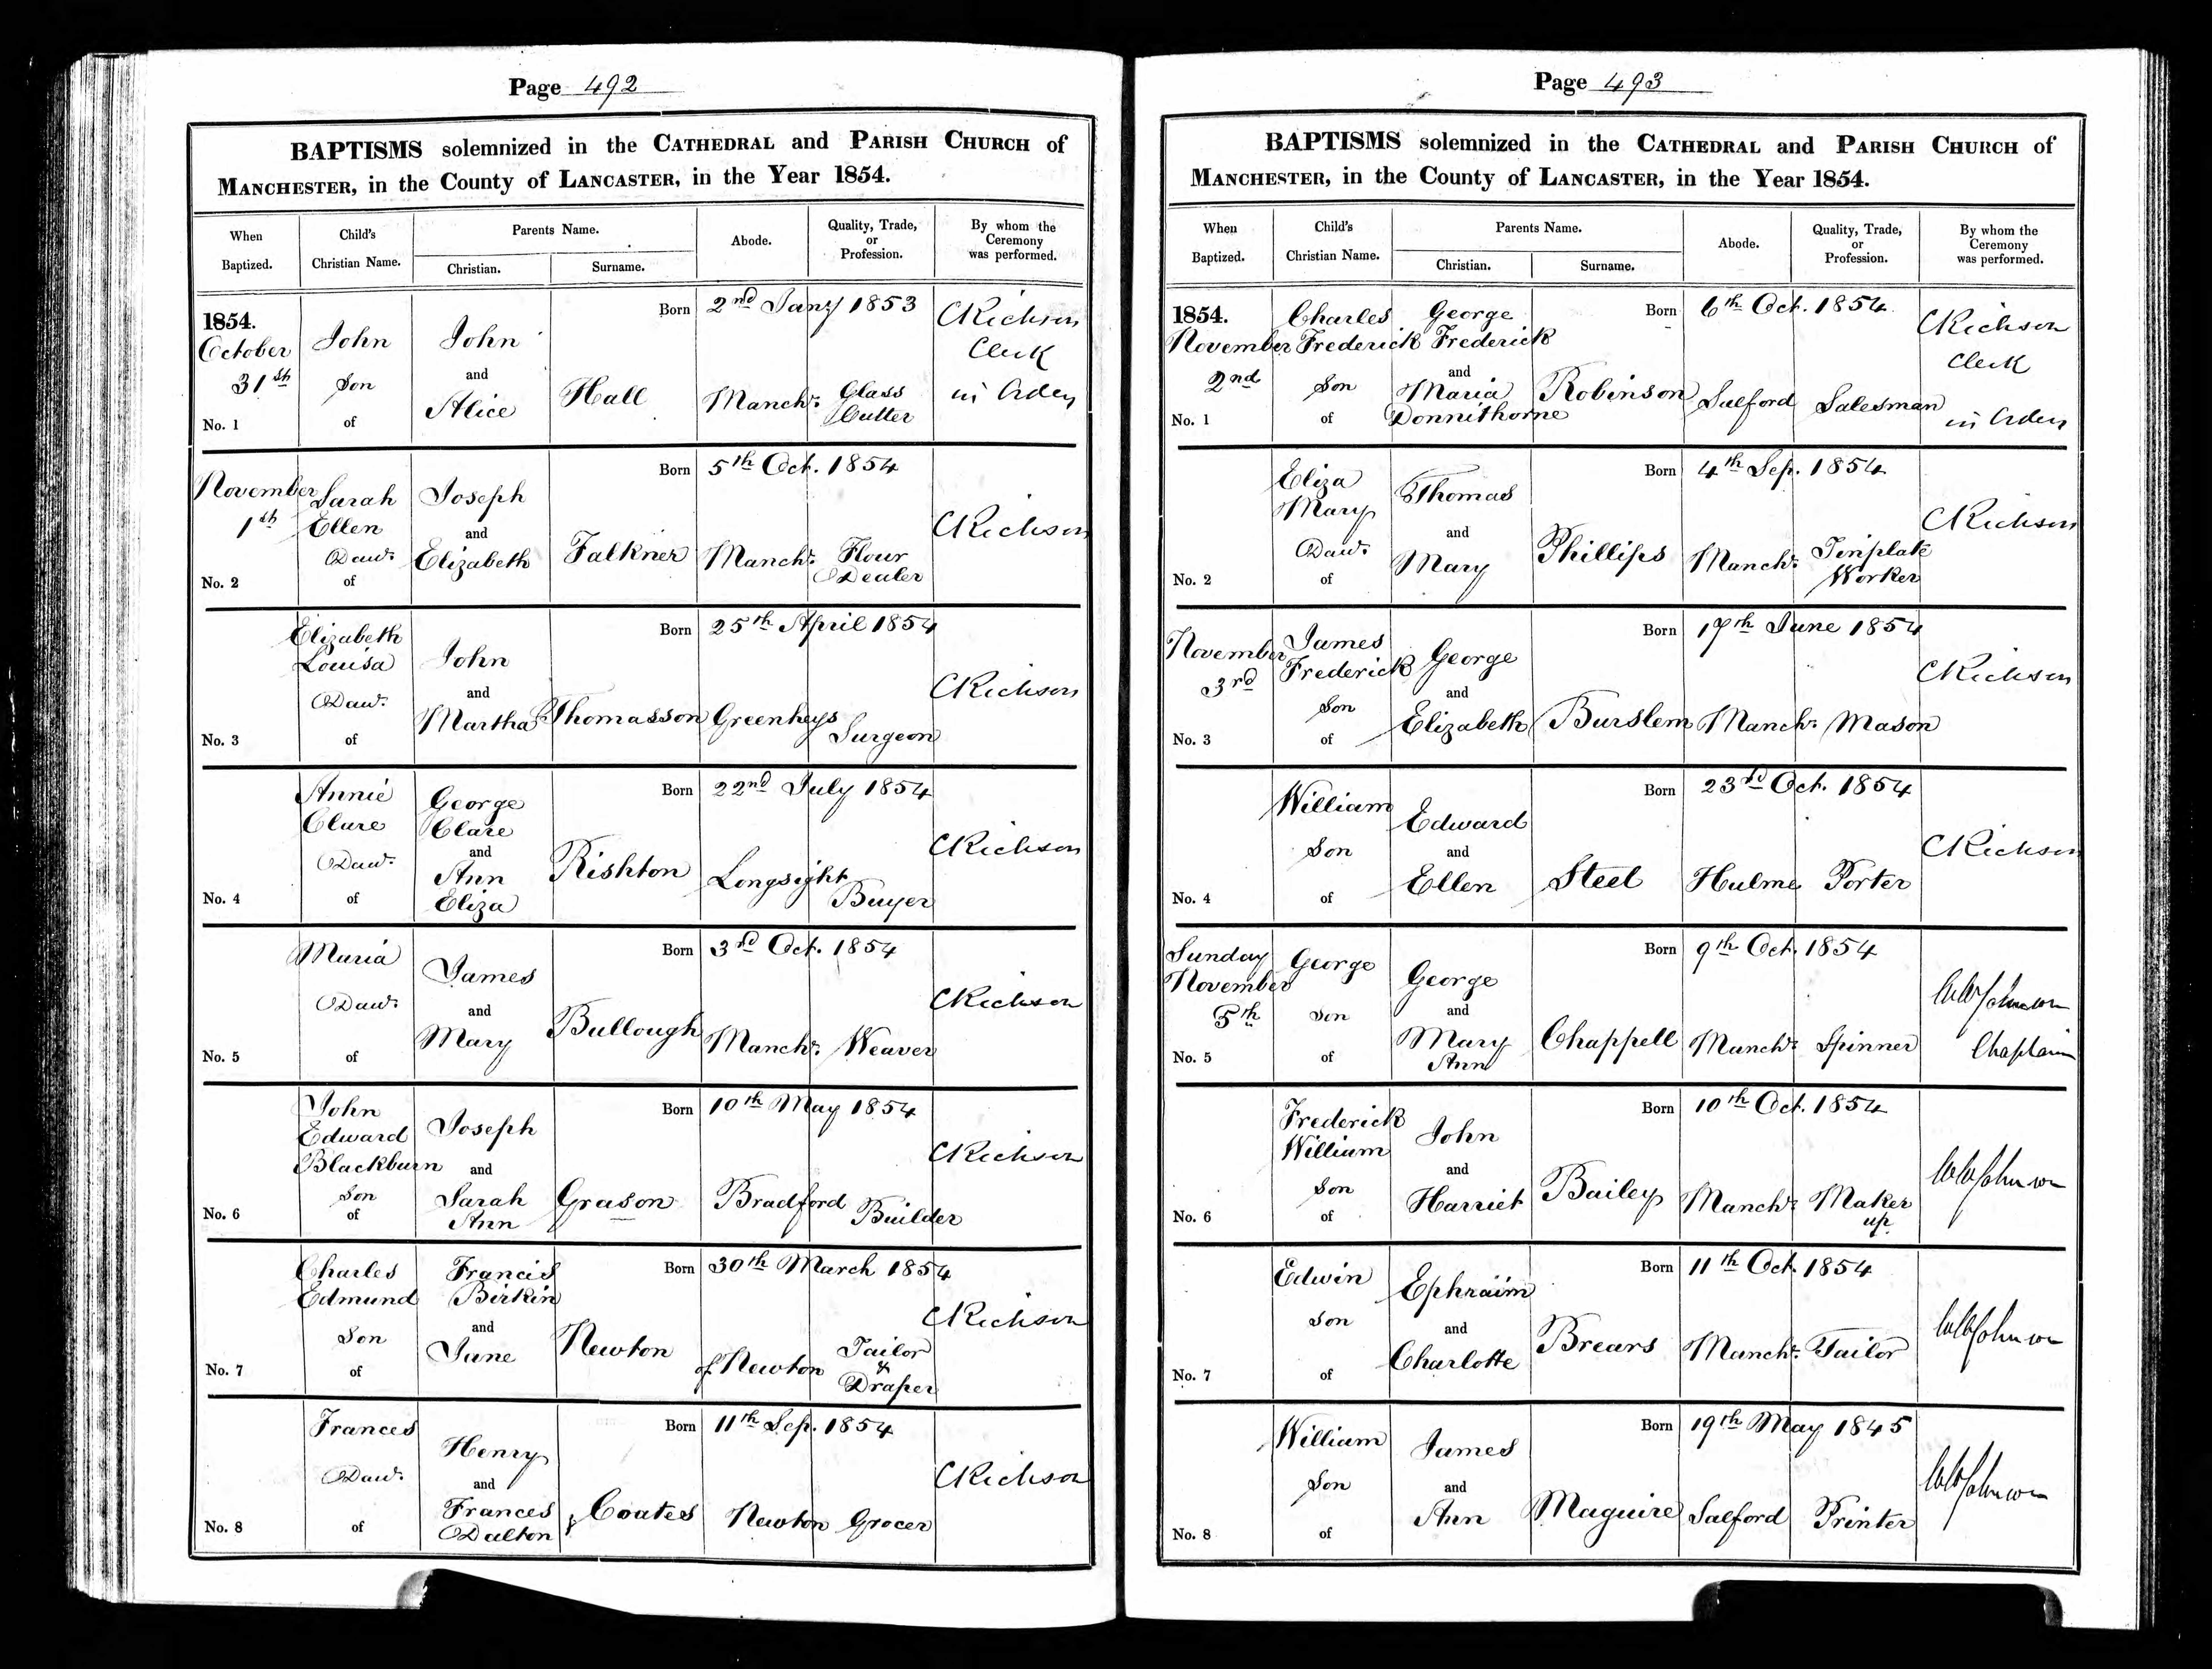 Page 492
BAPTISMS solemnized in the CATHEDRAL and PARISH CHURCH of
MANCHESTER, in the County of LANCASTER, in the Year 1854.
When Baptized.
Child's Christian Name.
Parents Name.
Christian.
Surname.
Abode.
Quality, Trade, or Profession.
By whom the Ceremony was performed.
1854.
October
31st
No. 1
John
Son
of
John
and
Alice
Hall
Born 2nd Jany 1853
Manchr.
Glass
Cutter
CRichson
Clerk
in Orders
November
1st
No. 2
Sarah
Ellen
Daur.
of
Joseph
and
Elizabeth
Falkner
Born 5th Oct. 1854
Manchr.
Flour
Dealer
CRichson
No. 3
Elizabeth
Louisa
Daur.
of
John
and
Martha
Thomasson
Born 25th April 1854
Greenheys
Surgeon
CRichson
No. 4
Annie
Clare
Daur.
of
George
Clare
and
Ann
Eliza
Rishton
Born 22nd July 1854
Longsight
Buyer
CRichson
No. 5
Maria
Daur.
of
James
and
Mary
Bullough
Born 3rd Oct. 1854
Manchr.
Weaver
CRichson
No. 6
John
Edward
Blackburn
Son
of
Joseph
and
Sarah
Ann
Grason
Born 10th May 1854
Bradford
Builder
CRichson
No. 7
Charles
Edmund
Son
of
Francis
Birkin
and
Jane
Newton
Born 30th March 1854
of Newton
Tailor
&
Draper
CRichson
No. 8
Frances
Daur.
of
Henry
and
Frances
Dalton
Coates
Born 11th Sep. 1854
Newton
Grocer
CRichson
Page 493
BAPTISMS solemnized in the CATHEDRAL and PARISH CHURCH of
MANCHESTER, in the County of LANCASTER, in the Year 1854.
When Baptized.
Child's Christian Name.
Parents Name.
Christian.
Surname.
Abode.
Quality, Trade, or Profession.
By whom the Ceremony was performed.
1854.
November
2nd
No. 1
Charles
Frederick
Son
of
George
Frederick
and
Maria
Donnithorne
Robinson
Born 6th Oct. 1854
Salford
Salesman
CRichson
Clerk
in Orders
No. 2
Eliza
Mary
Daur.
of
Thomas
and
Mary
Phillips
Born 4th Sep. 1854
Manchr.
Tinplate
Worker
CRichson
November
3rd
No. 3
James
Frederick
Son
of
George
and
Elizabeth
Burslem
Born 17th June 1854
Manchr.
Mason
CRichson
No. 4
William
Son
of
Edward
and
Ellen
Steel
Born 23rd Oct. 1854
Hulme
Porter
CRichson
Sunday
November
5th
No. 5
George
Son
of
George
and
Mary
Ann
Chappell
Born 9th Oct. 1854
Manchr.
Spinner
WWJohnson
Chaplain
No. 6
Frederick
William
Son
of
John
and
Harriet
Bailey
Born 10th Oct. 1854
Manchr.
Maker
up
WWJohnson
No. 7
Edwin
Son
of
Ephraim
and
Charlotte
Brears
Born 11th Oct. 1854
Manchr.
Tailor
WWJohnson
No. 8
William
Son
of
James
and
Ann
Maguire
Born 19th May 1845
Salford
Printer
WWJohnson